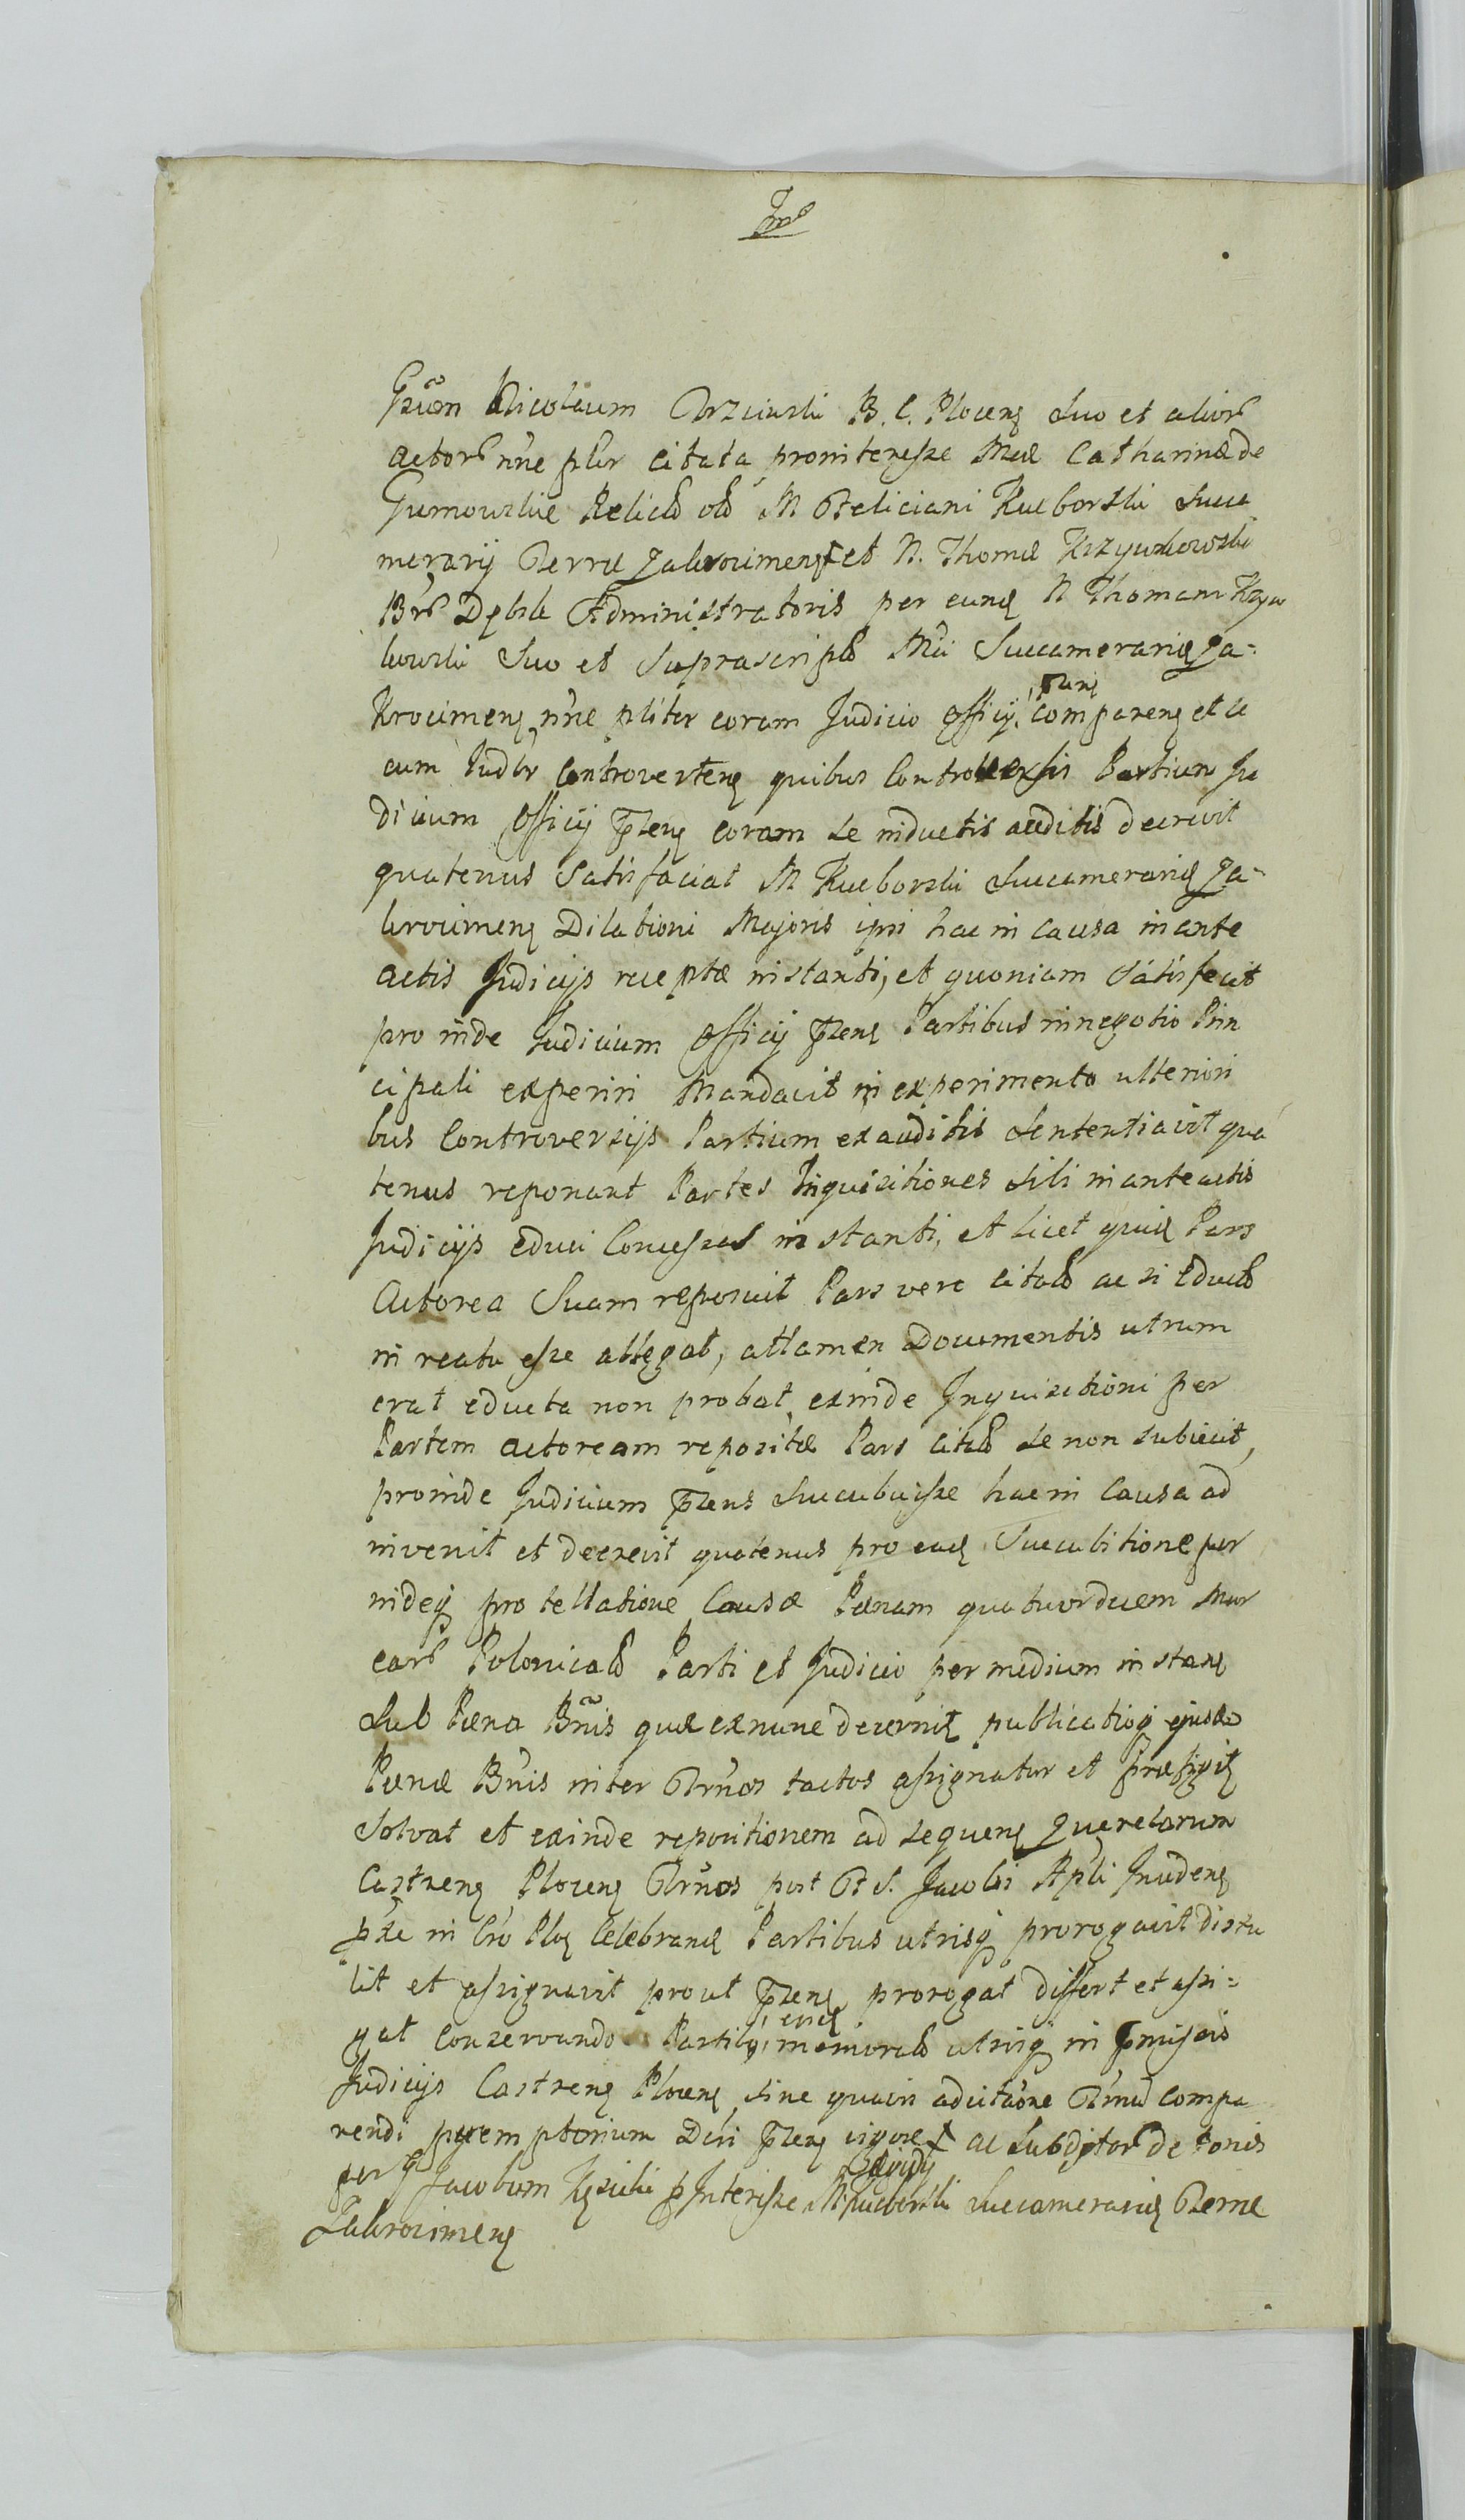 Gsūm Nicolaum Arzinski B. C. Plocens suo et alior
actor nne plr citata prointeresse Mae Catharinae de
Gumowskie Relictae M Feliciani Kucborski Succa
merarij Terrae Zakrocimens et N. Thomae Krzywkowski
Bnr Dębsk Administratoris per eund N Thomam Krzyw
kowski suo et suprascriptae Mei Succamerarid Za-
krocimens nne pliter coram Judicio Officij, comparens et a
cum Judtr Controvertens quibus Controversis Partium Ju
dicium Officij pzens coram se inductis auditis decrevit
quatenus satisfaciat M Kucborski Succamerarid Za-
krocimens Dilationi Majoris ipsi hac in causa in ante
actis Judicijs receptae instanti, et quoniam satisfecit
pro inde Judicium Officij pzens Partibus in negotio Prin
cipali experiri Mandavit in experimento ulteriori
bus Controversijs Partium exauditis sententiavit qua
tenus reponant Partes Inquisitiones sibi in anteactis
Judicijs educi Concessas in stanti, et licet quid Pars
Actorea suam reposuit Pars vero citata ac si educta
in reatu esse allegat, attamen Documentis utrum
erat educta non probat exinde Inquisitioni per
Partem actoream repositae Pars citata se non subiecit,
proinde Judicium pzens succubuisse hac in Causa ad
invenit et decrevit quatenus pro ead succubitione per
indeq pro tellatione Causae Paenam quatuordecem Mar
car Polonicał Parti et Judicio per medium in stans
sub Paena Bn̄is quae exnunc decernit publicatioq ejusdē
Paenae Bn̄is inter Trnos tactos assignatur et praefigit
solvat et exinde repositionem ad sequens Querelarum
Castrens Plocens Trnos post F S. Jacobi Apli Incidens
pże in Cro Ploc Celebrand Partibus utrisq prorogavit distu
lit et assignavit prout pzens prorogat differt et assi=
gat conservando Partibq, memorał utriq in pmissis
Judicijs Castrens Plocens sine quavis adcitaōne Trnū compa
rendi peremptorium Dcri pzens vigore ac subditor de bonis
per G Jacobum p Interesse M. Kucborski Succamerarid Terrae
Zakrocimens